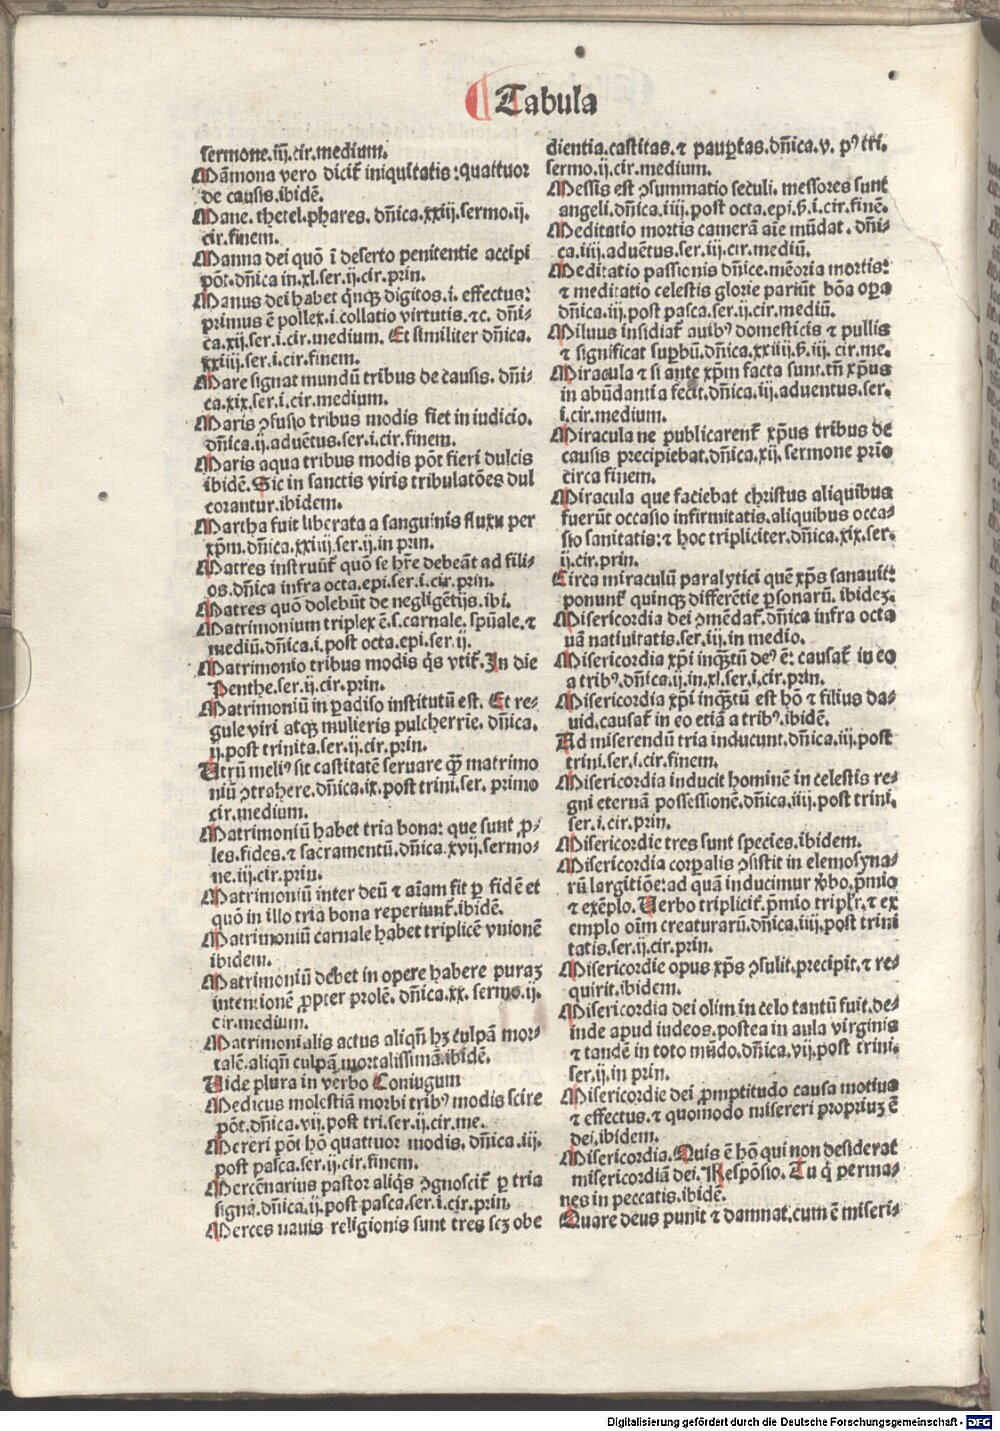 Tabula
sermone.iij.cir.medium.
Mãmona vero dicit᷑ iniquitatis:quattuor
de causis.ibidẽ.
Mane.thetel.phares. dñica.xxiij.sermo.ij.
cir.finem.
Manna dei quõ ĩ deserto penitentie accipi
põt.dñica in.xl.ser.ij.cir.prin.
Manus dei habet q̃nqꝫ digitos.i. effectus:
primus ẽ pollex.i.collatio virtutis.⁊c. dñi⸗
ca.xij.ser.i.cir.medium. Et similiter dñica.
xxiiij.ser.i.cir.finem.
Mare signat mundũ tribus de causis. dñi⸗
ca.xix.ser.i.cir.medium.
Maris ꝯfusio tribus modis fiet in iudicio.
dñica.ij.aduẽtus.ser.i.cir.finem.
Maris aqua tribus modis põt fieri dulcis
ibidẽ. Sic in sanctis viris tribulatões dul
corantur.ibidem.
Martha fuit liberata a sanguinis fluxu per
xp̃m.dñica.xxiiij.ser.ij.in prin.
Matres instruũt᷑ quõ se hr̃e debeãt ad fili⸗
os.dñica infra octa.epi.ser.i.cir.prin.
Matres quõ dolebũt de negligẽtijs.ibi.
Matrimonium triplex ẽ.s.carnale.spũale.⁊
mediũ.dñica.i.post octa.epi.ser.ij.
Matrimonio tribus modis q̃s vtit᷑. In die
Penthe.ser.ij.cir.prin.
Matrimoniũ in ꝑadiso institutũ est. Et re⸗
gule viri atqꝫ mulieris pulcherrie. dñica.
ij.post trinita.ser.ij.cir.prin.
Utrũ meliꝰ sit castitatẽ seruare q̃ꝫ matrimo
niũ ꝯtrahere.dñica.ix.post trini.ser. primo
cir.medium.
Matrimoniũ habet tria bona: que sunt ꝓ⸗
les.fides.⁊ sacramentũ.dñica.xvij.sermo⸗
ne.iij.cir.prin.
Matrimoniũ inter deũ ⁊ aĩam fit ꝑ fidẽ et
quõ in illo tria bona reperiunt᷑.ibidẽ.
Matrimoniũ carnale habet triplicẽ vnionẽ
ibidem.
Matrimoniũ debet in opere habere puraꝫ
intentionẽ ꝓpter prolẽ. dñica.xx. sermo.ij.
cir.medium.
Matrimonialis actus aliqñ hꝫ culpã mor⸗
talẽ.aliqñ culpã mortalissimã.ibidẽ.
Uide plura in verbo Coniugum
Medicus molestiã morbi tribꝰ modis scire
põt.dñica.vij.post tri.ser.ij.cir.me.
Mereri põt hõ quattuor modis. dñica.iij.
post pasca.ser.ij.cir.finem.
Mercẽnarius pastor aliq̃s ꝯgnoscit᷑ ꝑ tria
signa.dñica.ij.post pasca.ser.i.cir.prin.
Merces uauis religionis sunt tres scꝫ obe
dientia.castitas.⁊ pauꝑtas.dñica.v. pꝰ tri.
sermo.ij.cir.medium.
Messis est ꝯsummatio seculi. messores sunt
angeli.dñica.iiij.post octa.epi.ẞ.i.cir.finẽ.
Meditatio mortis camerã aĩe mũdat . dñi⸗
ca.iiij.aduẽtus.ser.iij.cir.mediũ.
Meditatio passionis dñice.mẽoria mortis:
⁊ meditatio celestis glorie pariũt bõa oꝑa
dñica.iij.post pasca.ser.ij.cir.mediũ.
Miluus insidiat᷑ auibꝰ domesticis ⁊ pullis
⁊ significat suꝑbũ.dñica.xxiiij.ẞ.iij. cir.me.
Miracula ⁊ si ante xp̃m facta sunt.tñ xp̃us
in abũdantia fecit.dñica.iij.aduentus.ser.
i.cir.medium.
Miracula ne publicarent᷑ xp̃us tribus de
causis precipiebat.dñica.xij. sermone prio
circa finem.
Miracula que faciebat christus aliquibus
fuerũt occasio infirmitatis.aliquibus occa⸗
sio sanitatis:⁊ hoc tripliciter.dñica.xix.ser.
ij.cir.prin.
Circa miraculũ paralytici quẽ xp̃s sanauit:
ponunt᷑ quinqꝫ differẽtie ꝑsonarũ. ibideꝫ.
Misericordia dei ꝯmẽdat᷑.dñica infra octa
uã natiuitatis.ser.iij.in medio.
Misericordia xp̃i inqꝫtũ deꝰ ẽ: causat᷑ in eo
a tribꝰ.dñica.ij.in.xl.ser.i.cir.prin.
Misericordia xp̃i inqꝫtũ est hõ ⁊ filius da⸗
uid.causat᷑ in eo etiã a tribꝰ.ibidẽ.
Ad miserendũ tria inducunt.dñica.iij.post
trini.ser.i.cir.finem.
Misericordia inducit hominẽ in celestis re⸗
gni eternã possessionẽ.dñica.iiij.post trini.
ser.i.cir.prin.
Misericordie tres sunt species.ibidem.
Misericordia corꝑalis ꝯsistit in elemosyna⸗
rũ largitiõe:ad quã inducimur v̾bo.p̃mio
⁊ exẽplo. Uerbo triplicit᷑.p̃mio tripl̃r.⁊ ex
emplo oĩm creaturarũ.dñica.iiij.post trini
tatis.ser.ij.cir.prin.
Misericordie opus xp̃s ꝯsulit.precipit.⁊ re⸗
quirit.ibidem.
Misericordia dei olim in celo tantũ fuit.de⸗
inde apud iudeos.postea in aula virginis
⁊ tandẽ in toto mũdo.dñica.vij.post trini.
ser.ij.in prin.
Misericordie dei ꝓmptitudo causa motiua
⁊ effectus.⁊ quomodo misereri propriuꝫ ẽ
dei.ibidem.
Misericordia. Quis ẽ hõ qui non desiderat
misericordiã dei. Respõsio. Tu q̃ perma⸗
nes in peccatis.ibidẽ.
Quare deus punit ⁊ damnat.cum ẽ miseri⸗
Digitalisierung gefördert durch die Deutsche Forschungsgemeinschaft - DFG